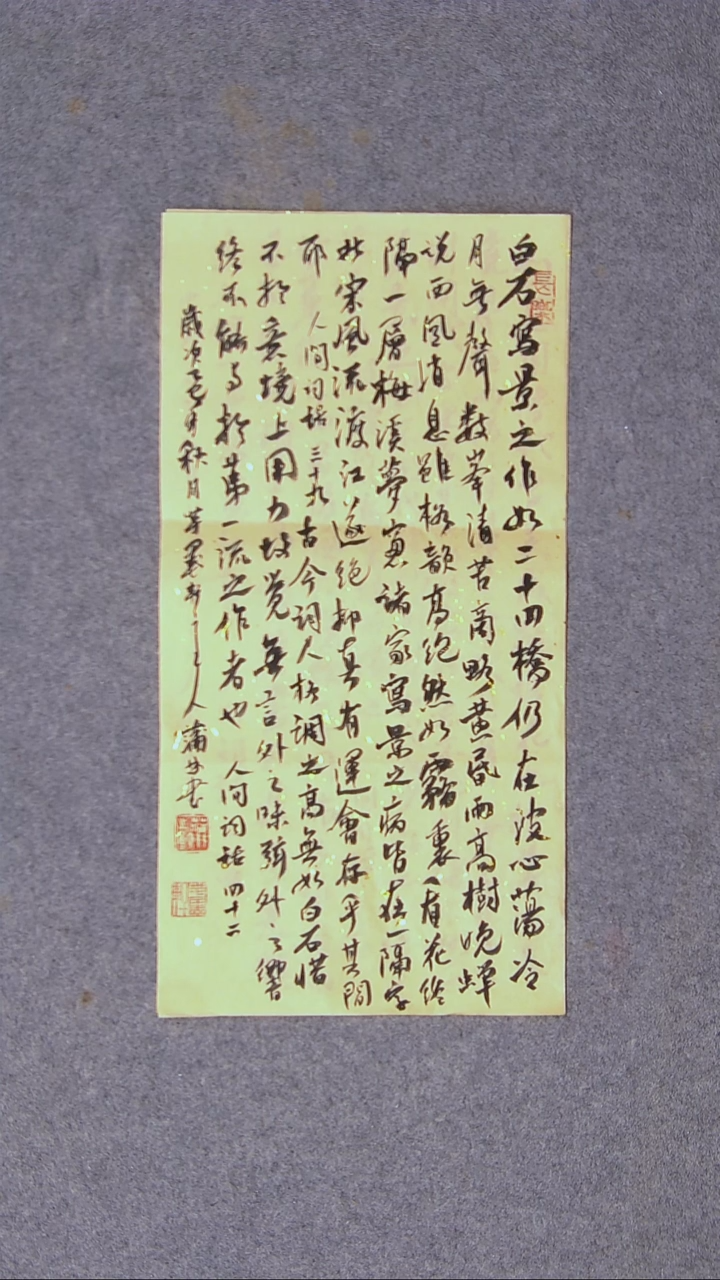 白石寫景之作如二十四橋仍在波心蕩冷
月無聲數峯清苦商略黄昏雨高樹晚蟬
说西風消息雖格韻高绝然如霧裏看花终
隔一層梅溪夢窗諸家寫景之病皆在一隔字
北宋風流渡江遂绝抑真有運會存乎其間
耶 人间词话 三十九 古今词人格调之高無如白石惜
不於意境上用力故覺無言外之味弦外之響
终不能与於第一流之作者也 人间词话 四十二
歲次乙巳年秋月 人 书